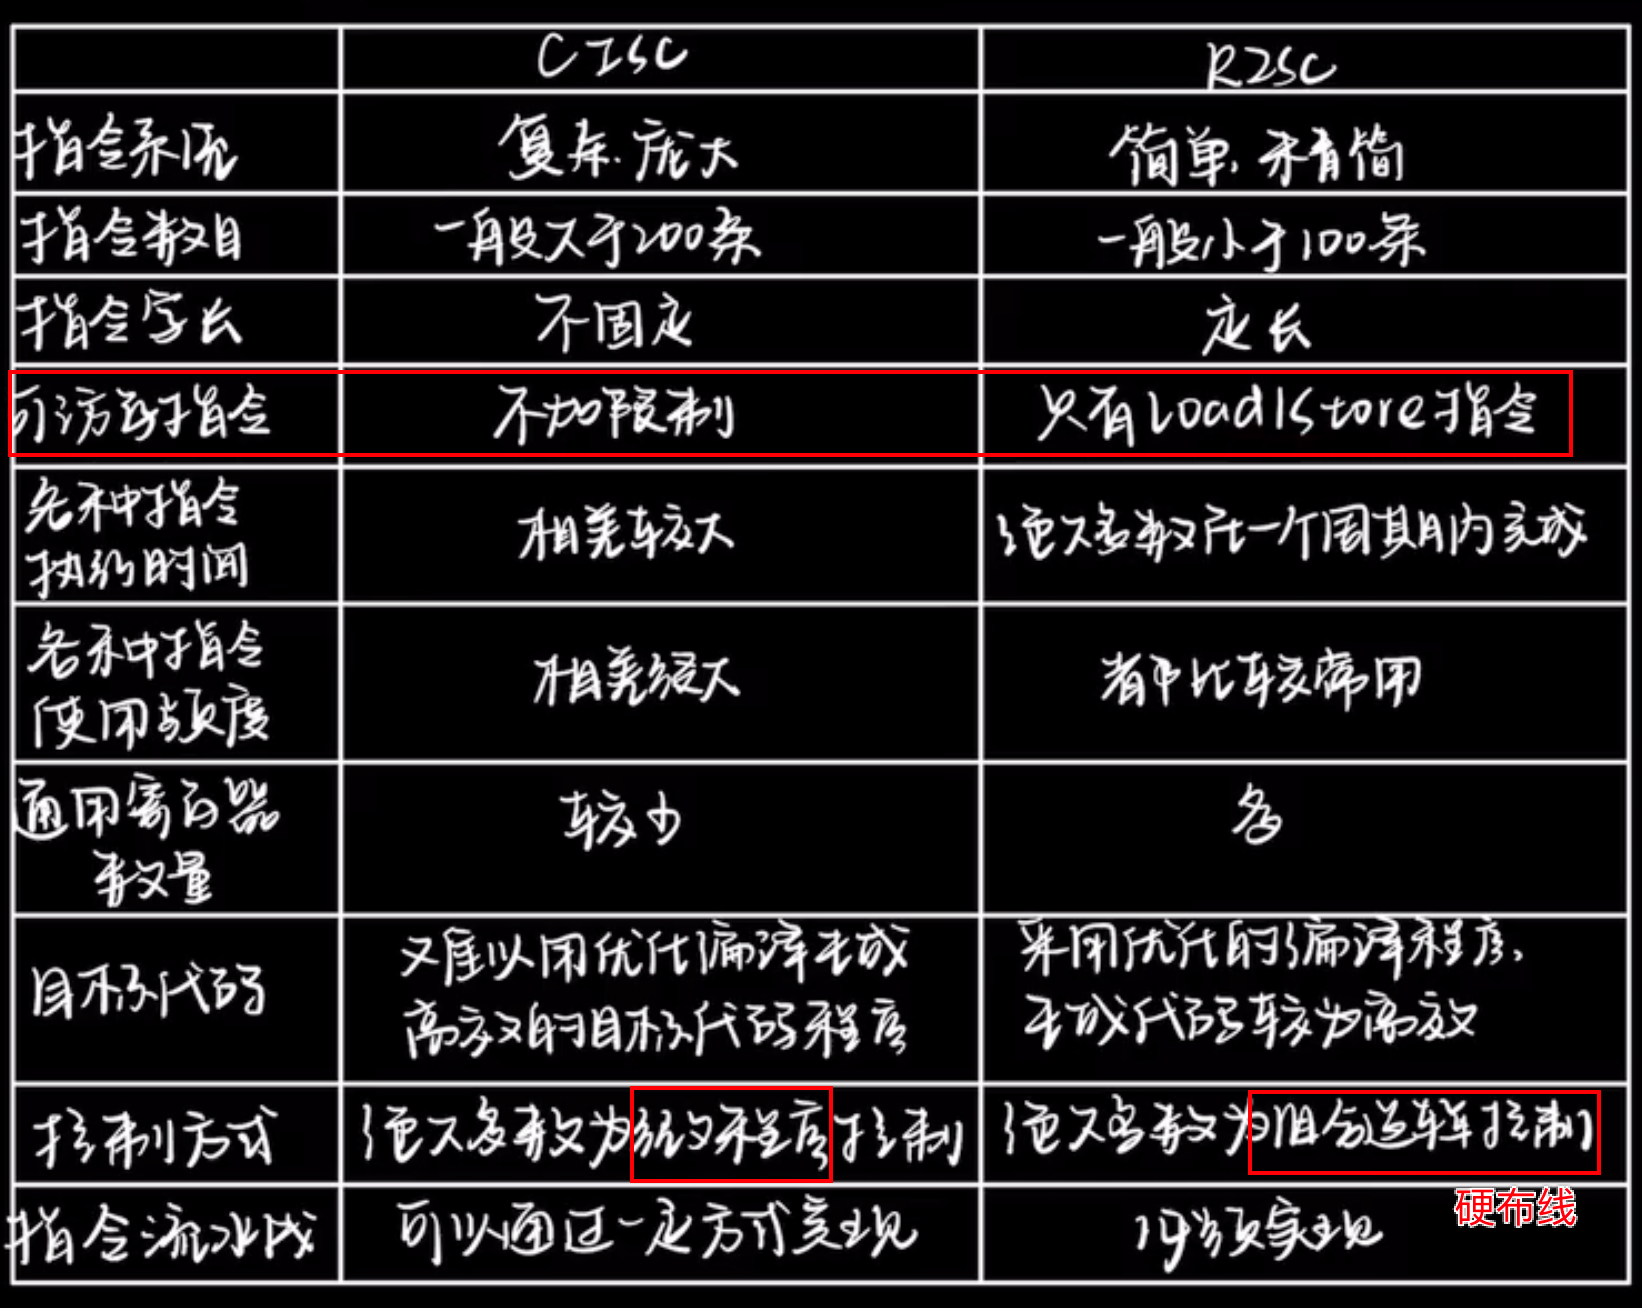 CISC
RISC
指令系统
复杂.庞大
简单,精简
指令数目
一般大于200条
一般小于100条
指令字长
不固定
定长
可访存指令
不加限制
只有Load/Store指令
各种指令
执行时间
相差较大
绝大多数在一个周期内完成
各种指令
使用频度
相差很大
都比较常用
通用寄存器
数量
较少
多
目标代码
难以用优化编译生成
高效的目标代码程序
采用优化的编译程序,
生成代码较为高效
控制方式
绝大多数为微程序控制
绝大多数为组合逻辑控制
硬布线
指令流水线
可以通过一定方式实现
必须实现